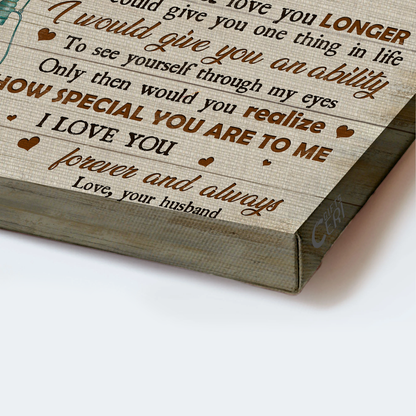 love you LONGER
could give you one thing in life
I would give you an ability
To see yourself through my eyes
Only then would you realize
HOW SPECIAL YOU ARE TO ME
I LOVE YOU
forever and always
Love, your husband